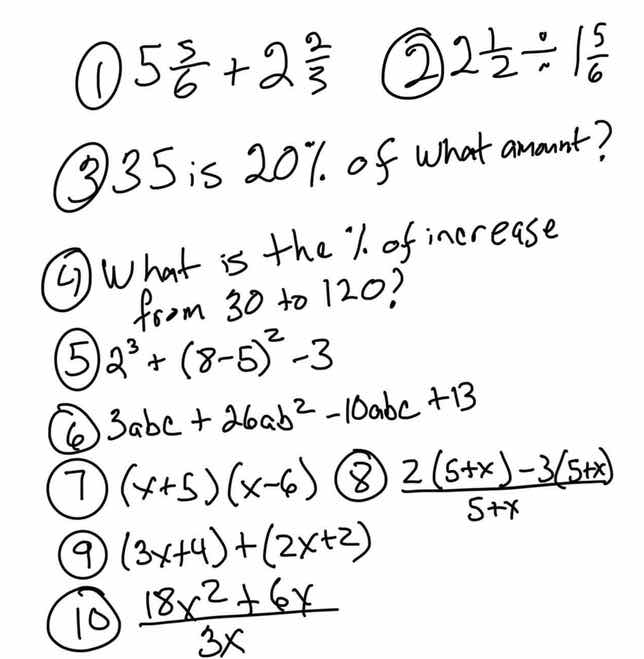 ① 5 5/6 + 2 2/3 ② 2 1/2 ÷ 1 5/6
③ 35 is 20% of what amount?
④ What is the % of increase
from 30 to 120?
⑤ 2³ + (8-5)² - 3
⑥ 3abc + 26ab² - 10abc + 13
⑦ (x+5)(x-6) ⑧ 2(5+x)-3(5+x)/5+x
⑨ (3x+4)+(2x+2)
⑩ 18x²+6x/3x